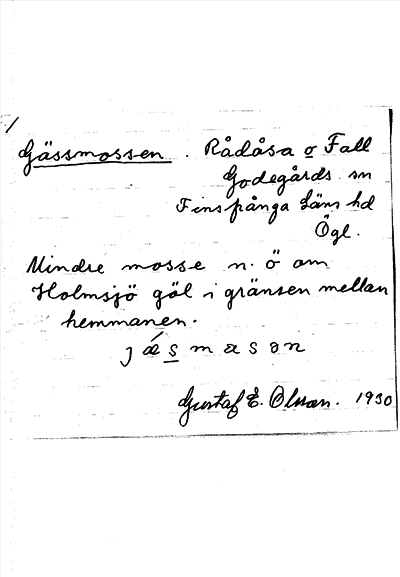 Gässmossen. Rådåsa o Fall
Godegårds sn
Finspånga läns hd
Ögl.
Mindre mosse n. ö om
Holmsjö göl i gränsen mellan
hemmanen.
jǽsmasan
Gustaf E. Olsson. 1930